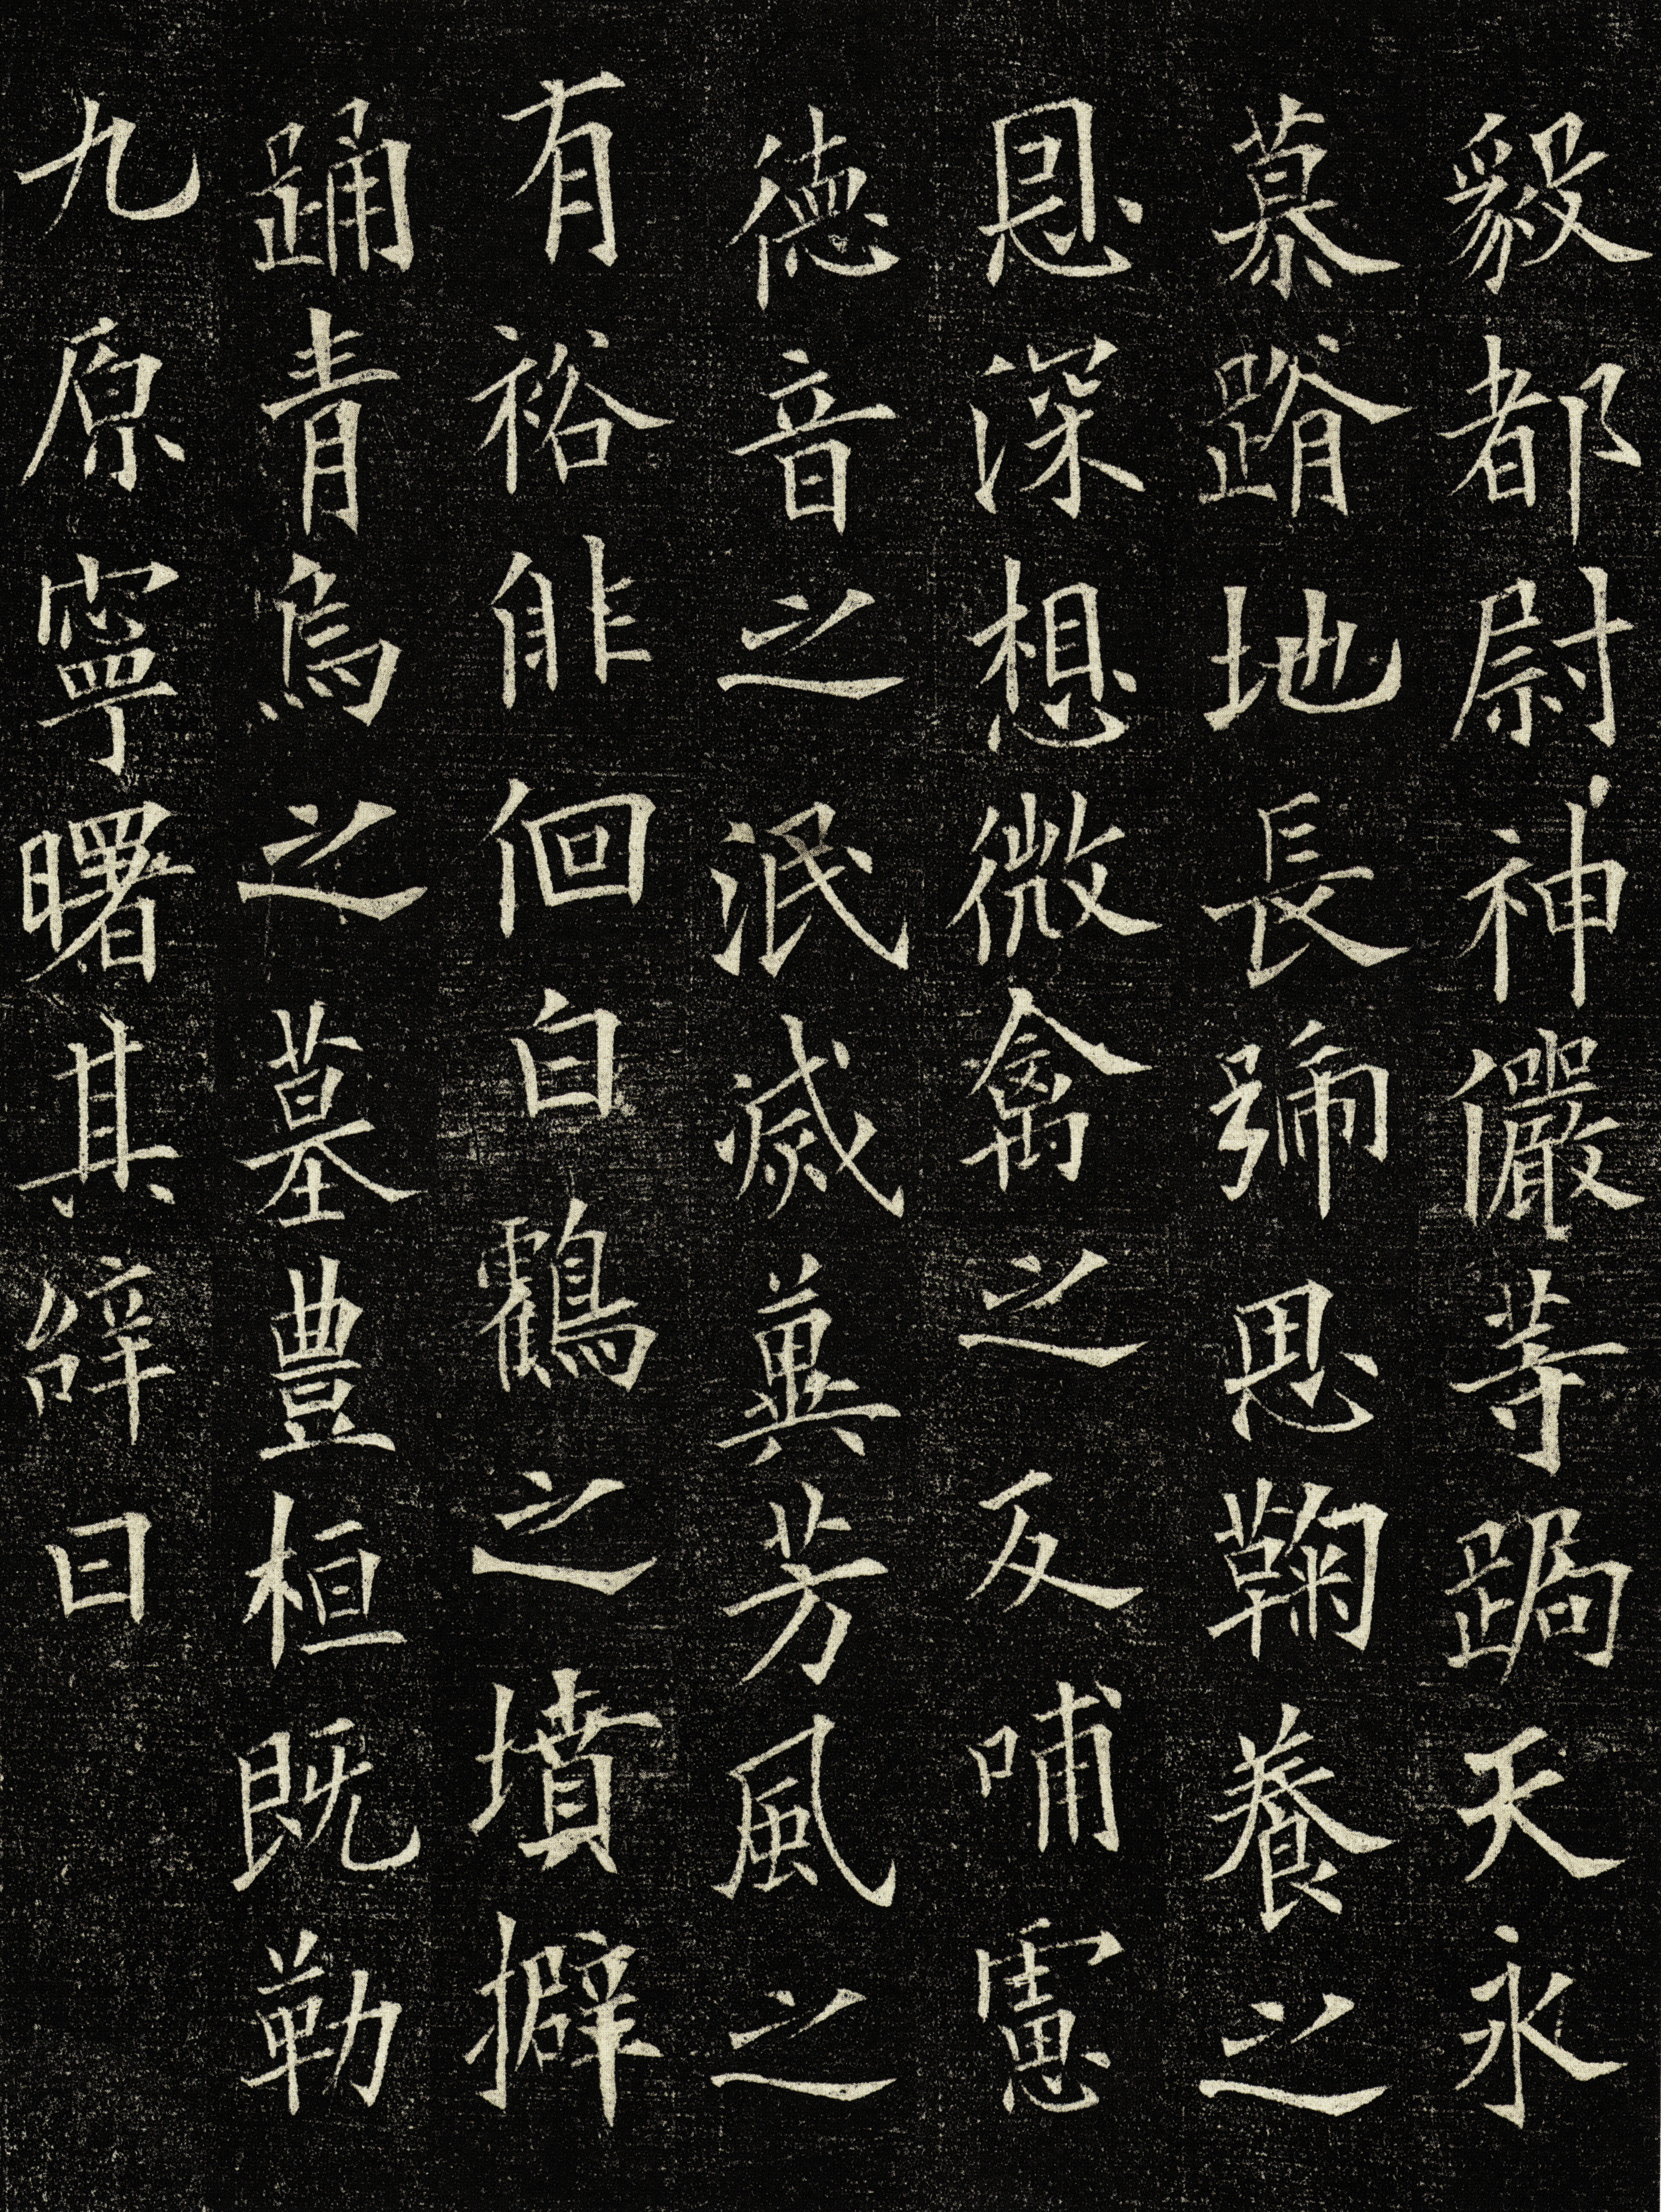 毅都尉神儼等跼天永
慕蹐地長號思鞠養之
恩深想微禽之反哺慮
德音之泯滅冀芳風之
有裕俳佪白鶴之墳擗
踊青烏之墓豊桓既勒
九原寧曙其辞曰